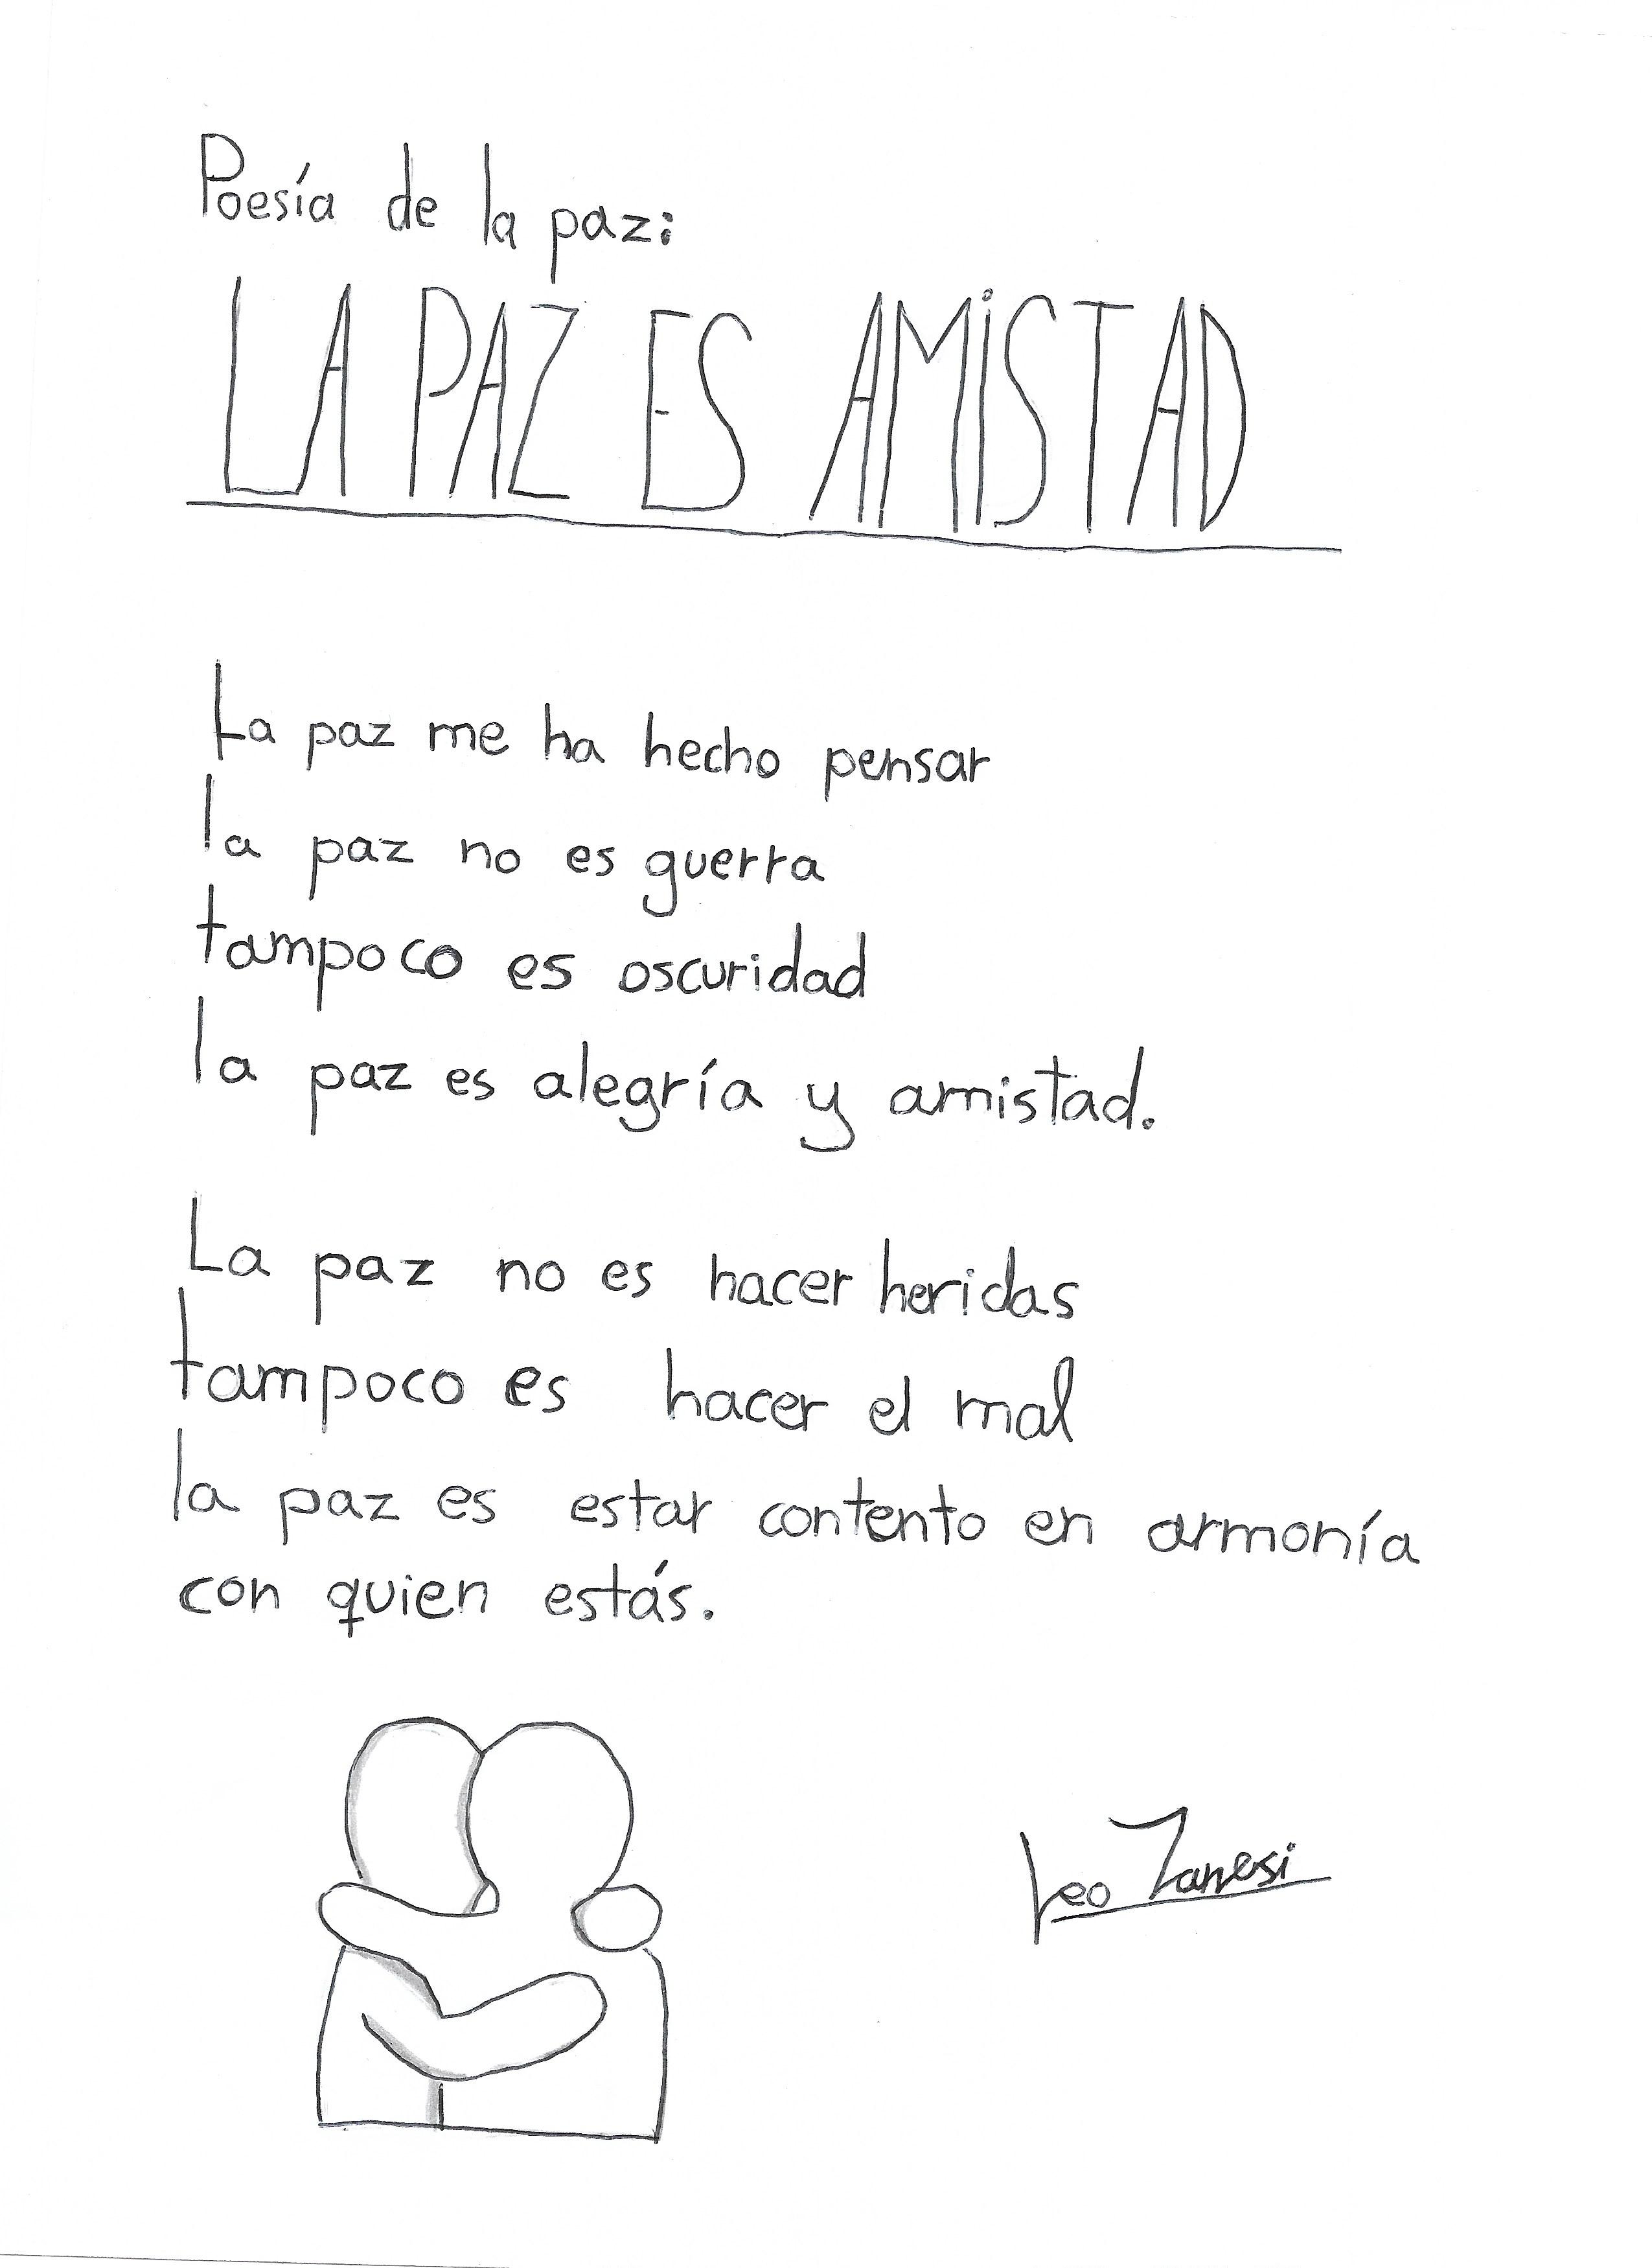 Poesía de la paz:
LA PAZ ES AMiSTAD
La paz me ha hecho pensar
la paz no es guerra
tampoco es oscuridad
la paz es alegría y amistad.
La paz no es hacer heridas
tampoco es hacer el mal
la paz es estar contento en armonía
con quien estás.
Leo Zanesi